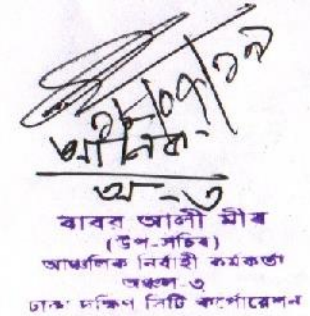 আনিক
অ-৩
বাবর আলী মীর
(উপ-সচিব)
আঞ্চলিক নির্বাহী কর্মকর্তা
অঞ্চল-৩
ঢাকা দক্ষিণ সিটি কর্পোরেশন